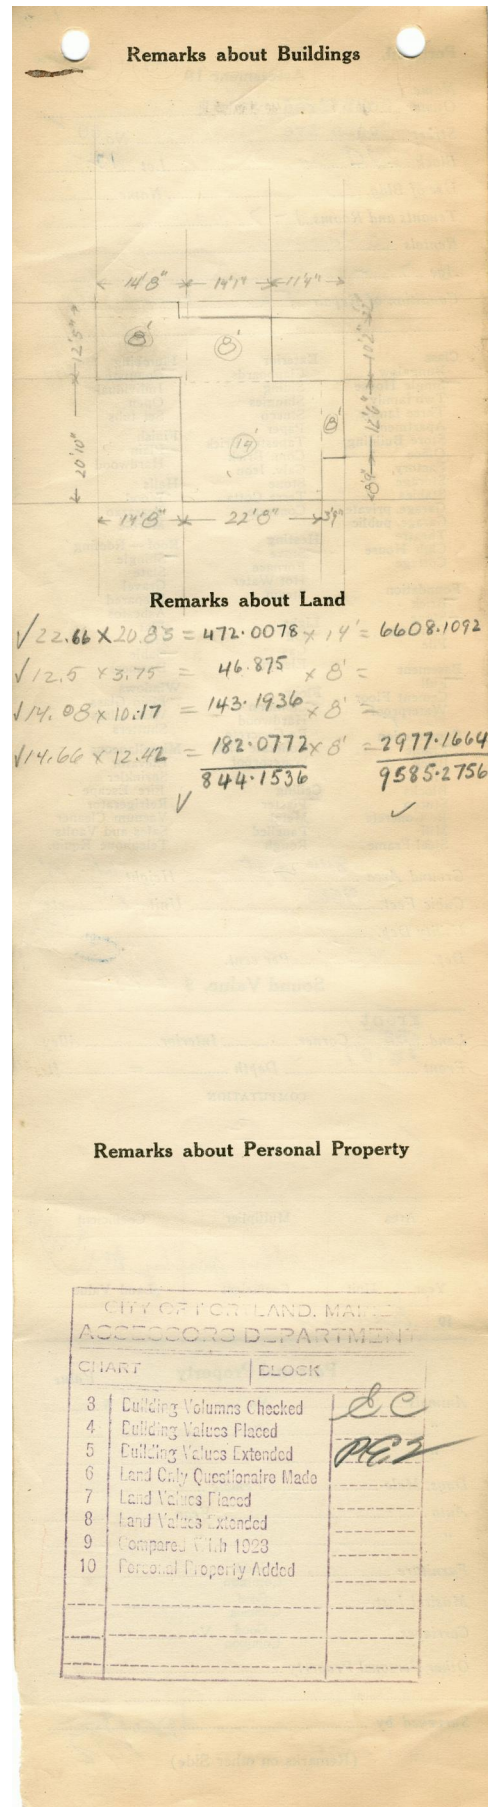 Remarks about Buildings
14'8" 14'1" 11'4"
12'5" 8' 8' 10'2"
20'10" 14' 8' 12'6"
14'8" 22'8" 3'9"
Remarks about Land
√22.66 × 20.83 = 472.0078 × 14' = 6608.1092
√12.5 × 3.75 = 46.875 × 8' =
√14.08 × 10.17 = 143.1936 × 8' =
√14.66 × 12.42 = 182.0772 × 8' = 2977.1664
844.1536 9585.2756
Remarks about Personal Property
CITY OF PORTLAND, MAINE
ASSESSORS DEPARTMENT
CHART BLOCK
3 Building Volumns Checked
4 Building Values Placed
5 Building Values Extended
6 Land Only Questionaire Made
7 Land Values Placed
8 Land Values Extended
9 Compared With 1923
10 Personal Property Added